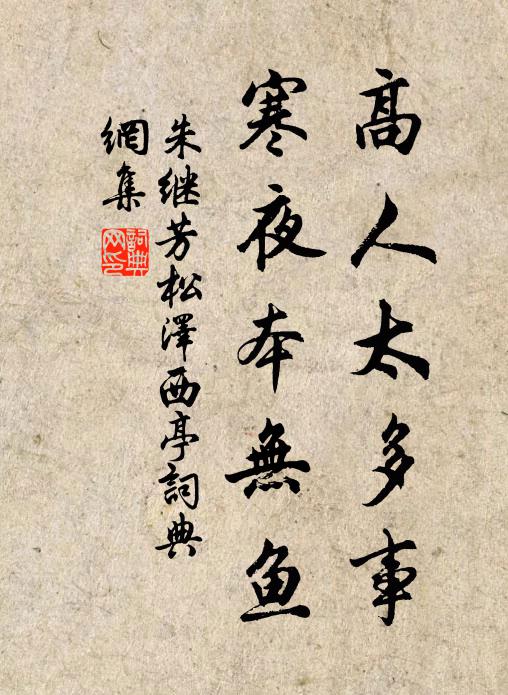 高人太多事
寒夜本無魚
朱继芳松澤西亭詞典
網集
詞典
网印